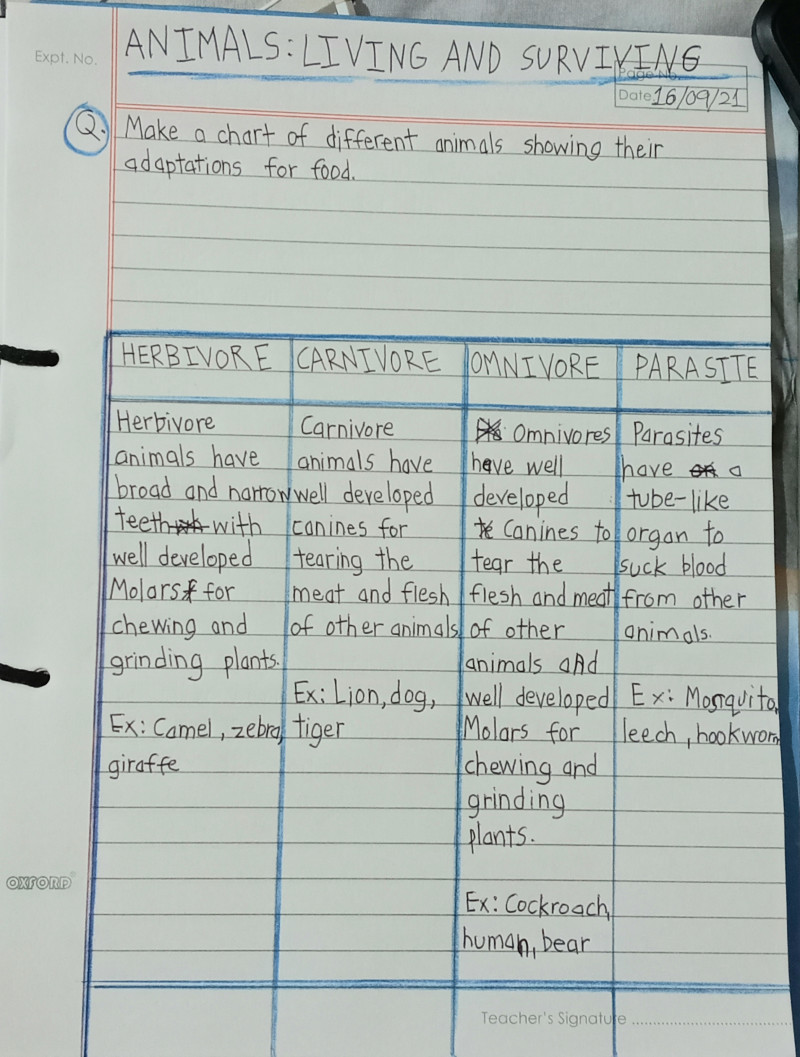 Expt. No.
ANIMALS: LIVING AND SURVIVING
Page No.
Date 16/09/21
Q. Make a chart of different animals showing their
adaptations for food.
HERBIVORE
Herbivore
animals have
broad and narrow
teeth with
well developed
Molars for
chewing and
grinding plants.
Ex: Camel, zebra,
giraffe
CARNIVORE
Carnivore
animals have
well developed
canines for
tearing the
meat and flesh
of other animals
Ex: Lion, dog,
tiger
OMNIVORE
Omnivores
have well
developed
Canines to
tear the
flesh and meat
of other
animals and
well developed
Molars for
chewing and
grinding
plants.
Ex: Cockroach,
human, bear
PARASITE
Parasites
have a
tube-like
organ to
suck blood
from other
animals.
Ex: Mosquito,
leech, hookworm
OXFORD
Teacher's Signature